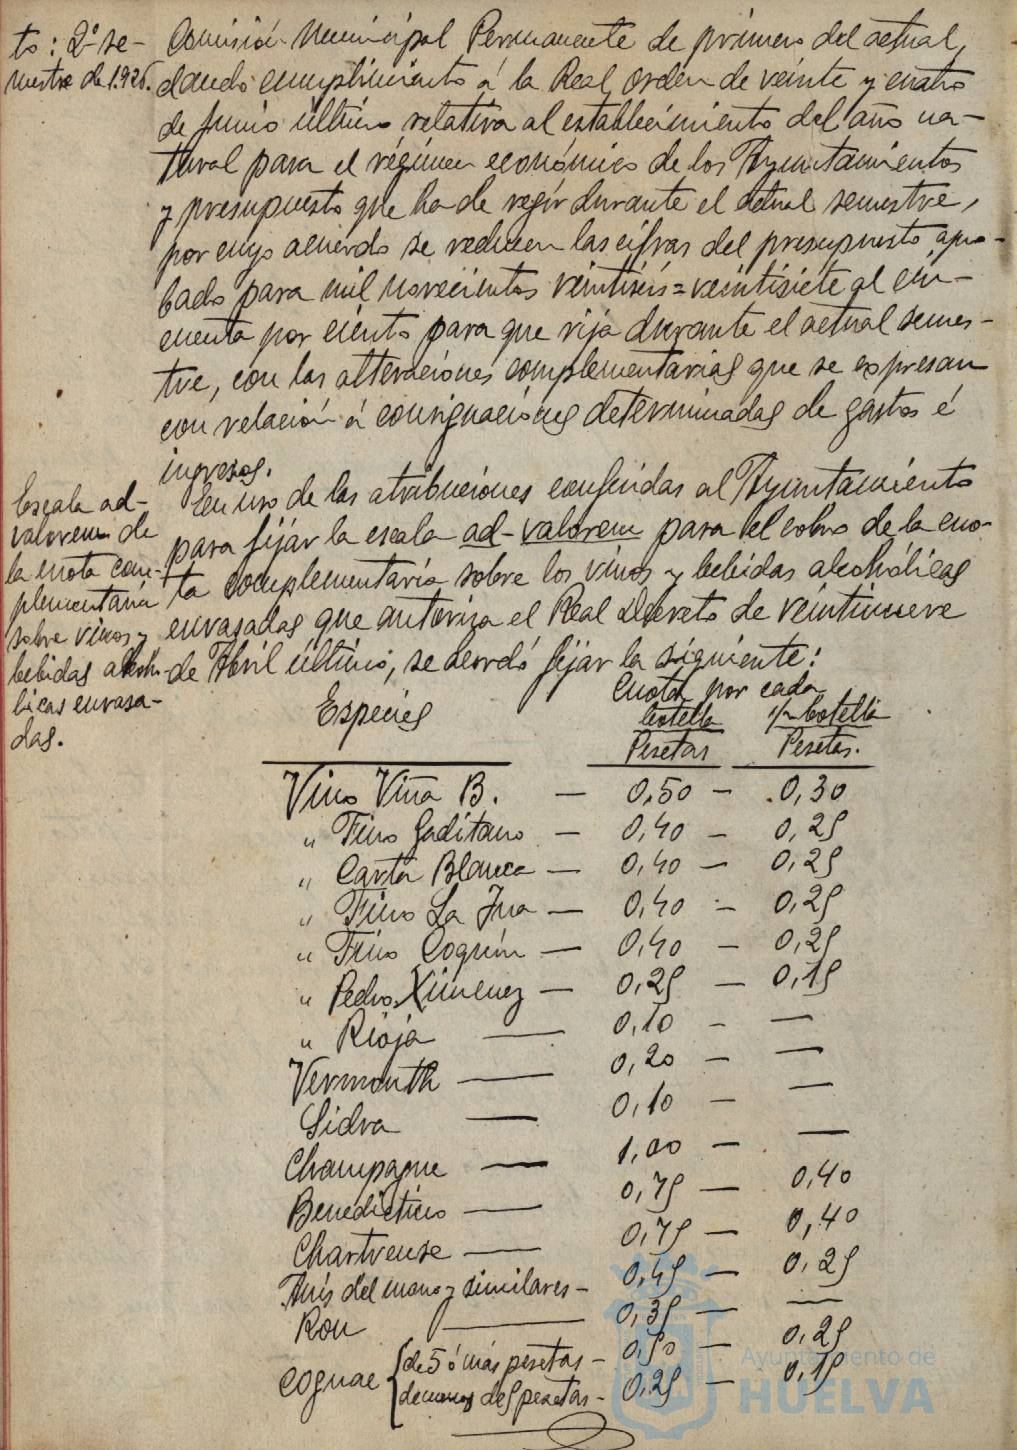 to: 2º se-
mestre de 1.926.
Comisión Municipal Permanente de primero del actual,
dando cumplimiento á la Real orden de veinte y cuatro
de Junio último relativa al establecimiento del año na-
tural para el régimen económico de los Ayuntamientos
y presupuesto que ha de regir durante el actual semestre,
por cuyo acuerdo se reducen las cifras del presupuesto apro-
bado para mil novecientos veintiseis=veintisiete al cin-
cuenta por ciento para que rija durante el actual semes-
tre, con las alteraciones complementarias que se expresan
con relación á consignaciones determinadas de gastos é
ingresos.
Escala ad-
valorem de
la cuota com-
plementaria
sobre vinos y
bebidas alcohó-
licas envasa-
das.
En uso de las atribuciones conferidas al Ayuntamiento
para fijar la escala ad-valorem para el cobro de la cuo-
ta complementaria sobre los vinos y bebidas alcohólicas
envasadas que autoriza el Real Decreto de veintinueve
de Abril último, se acordó fijar la siguiente:
Especies
Cuota por cada
botella ½ botella
Pesetas Pesetas.
Vino Viña B. — 0,50 — 0,30
" Fino Gaditano — 0,40 — 0,25
" Carta Blanca — 0,40 — 0,25
" Fino La Ina — 0,40 — 0,25
" Fino Coquín — 0,40 — 0,25
" Pedro Ximenez — 0,25 — 0,15
" Rioja — 0,10 — —
Vermouth — 0,20 — —
Sidra — 0,10 — —
Champagne — 1,00 — —
Benedictino — 0,75 — 0,40
Chartreuse — 0,75 — 0,40
Anís del mono y similares — 0,45 — 0,25
Ron — 0,35 — —
Cognac { de 5 ó más pesetas — 0,50 — 0,25
de menos de 5 pesetas — 0,25 — 0,15
Ayuntamiento de
HUELVA